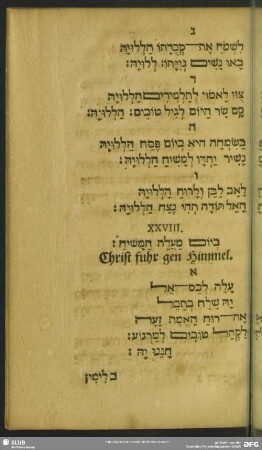 ג
לִשְׁמֹחַ אֶת קְבֻרָתוֹ הַלְלוּיָהּ
בָּאוּ נָשִׁים גְּוִיָּתוֹ: לְלוּיָהּ:
ד
צִוּוּ לֵאמוֹר לְתַלְמִידִים הַלְלוּיָהּ
קָם שַׂר הַיּוֹם לְגִיל טוֹבִים: הַלְלוּיָהּ:
ה
בְּשִׂמְחָה הִיא בְּיוֹם פֶּסַח הַלְלוּיָהּ
נָשִׁיר יַחְדָּו לַמָּשִׁיחַ הַלְלוּיָהּ:
ו
לְאַב לְבֵן וְלְרוּחַ הַלְלוּיָהּ
הָאֵל תּוֹדָה תְּהִי נֶצַח הַלְלוּיָהּ:
XXVIII.
בְּיוֹם מַעֲלֵה הַמָּשִׁיחַ:
Christ fuhr gen Himmel.
א
עָלָה לְכִסֵּא אֵל
יָהּ שָׁלַח
אֶת רוּחַ הָאֱמֶת
לִקְהַל טוֹבִים לְמַרְגּוֹעַ:
חָנֵּנוּ יָהּ:
ב לימין
SLUB
DFG